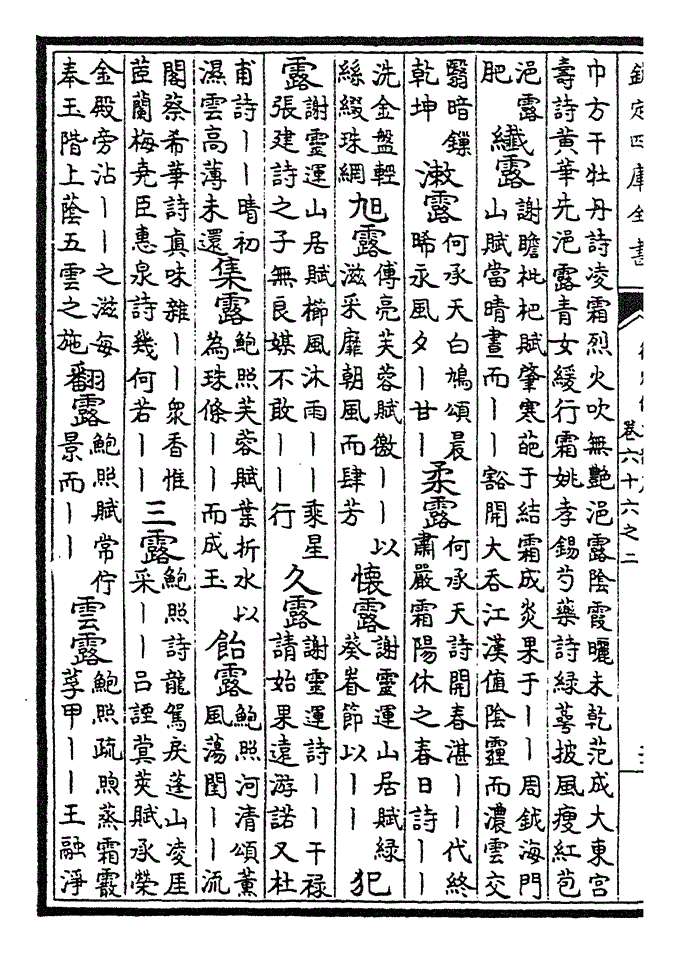 欽定四庫全書
卷六十六之二
巾方干牡丹詩凌霜烈火吹無艷浥露陰霞曬未乾范成大東宮
壽詩黄華先浥露青女緩行霜姚孝錫芍藥詩緑萼披風瘦紅苞
浥露
肥
纖露
謝瞻枇杷賦肇寒葩于結霜成炎果于丨丨周鉞海門
山賦當晴晝而丨丨豁開大吞江漢值陰霾而濃雲交
翳暗鏁
乾坤
潄露
何承天白鳩頌晨
晞永風夕丨甘丨
柔露
何承天詩開春湛丨丨代終
肅嚴霜陽休之春日詩丨丨
洗金盤輕
絲綴珠網
旭露
傅亮芙蓉賦徼丨丨以
滋采靡朝風而肆芳
懷露
謝靈運山居賦緑
葵眷節以丨丨
犯
露
謝靈運山居賦櫛風沐雨丨丨乘星
張建詩之子無良媒不敢丨丨行
久露
謝靈運詩丨丨干禄
請始果遠游諾又杜
甫詩丨丨晴初
濕雲高薄未還
集露
鮑照芙蓉賦葉折水以
為珠條丨丨而成玉
飴露
鮑照河清頌薰
風蕩閨丨丨流
閣蔡希華詩真味雜丨丨衆香惟
茝蘭梅堯臣惠泉詩幾何若丨丨
三露
鮑照詩龍駕戾蓬山凌厓
采丨丨吕諲蓂莢賦承榮
金殿旁沾丨丨之滋每
奉玉階上蔭五雲之施
翻露
鮑照賦常佇
景而丨丨
雲露
鮑照疏煦蒸霜霰
莩甲丨丨王融淨